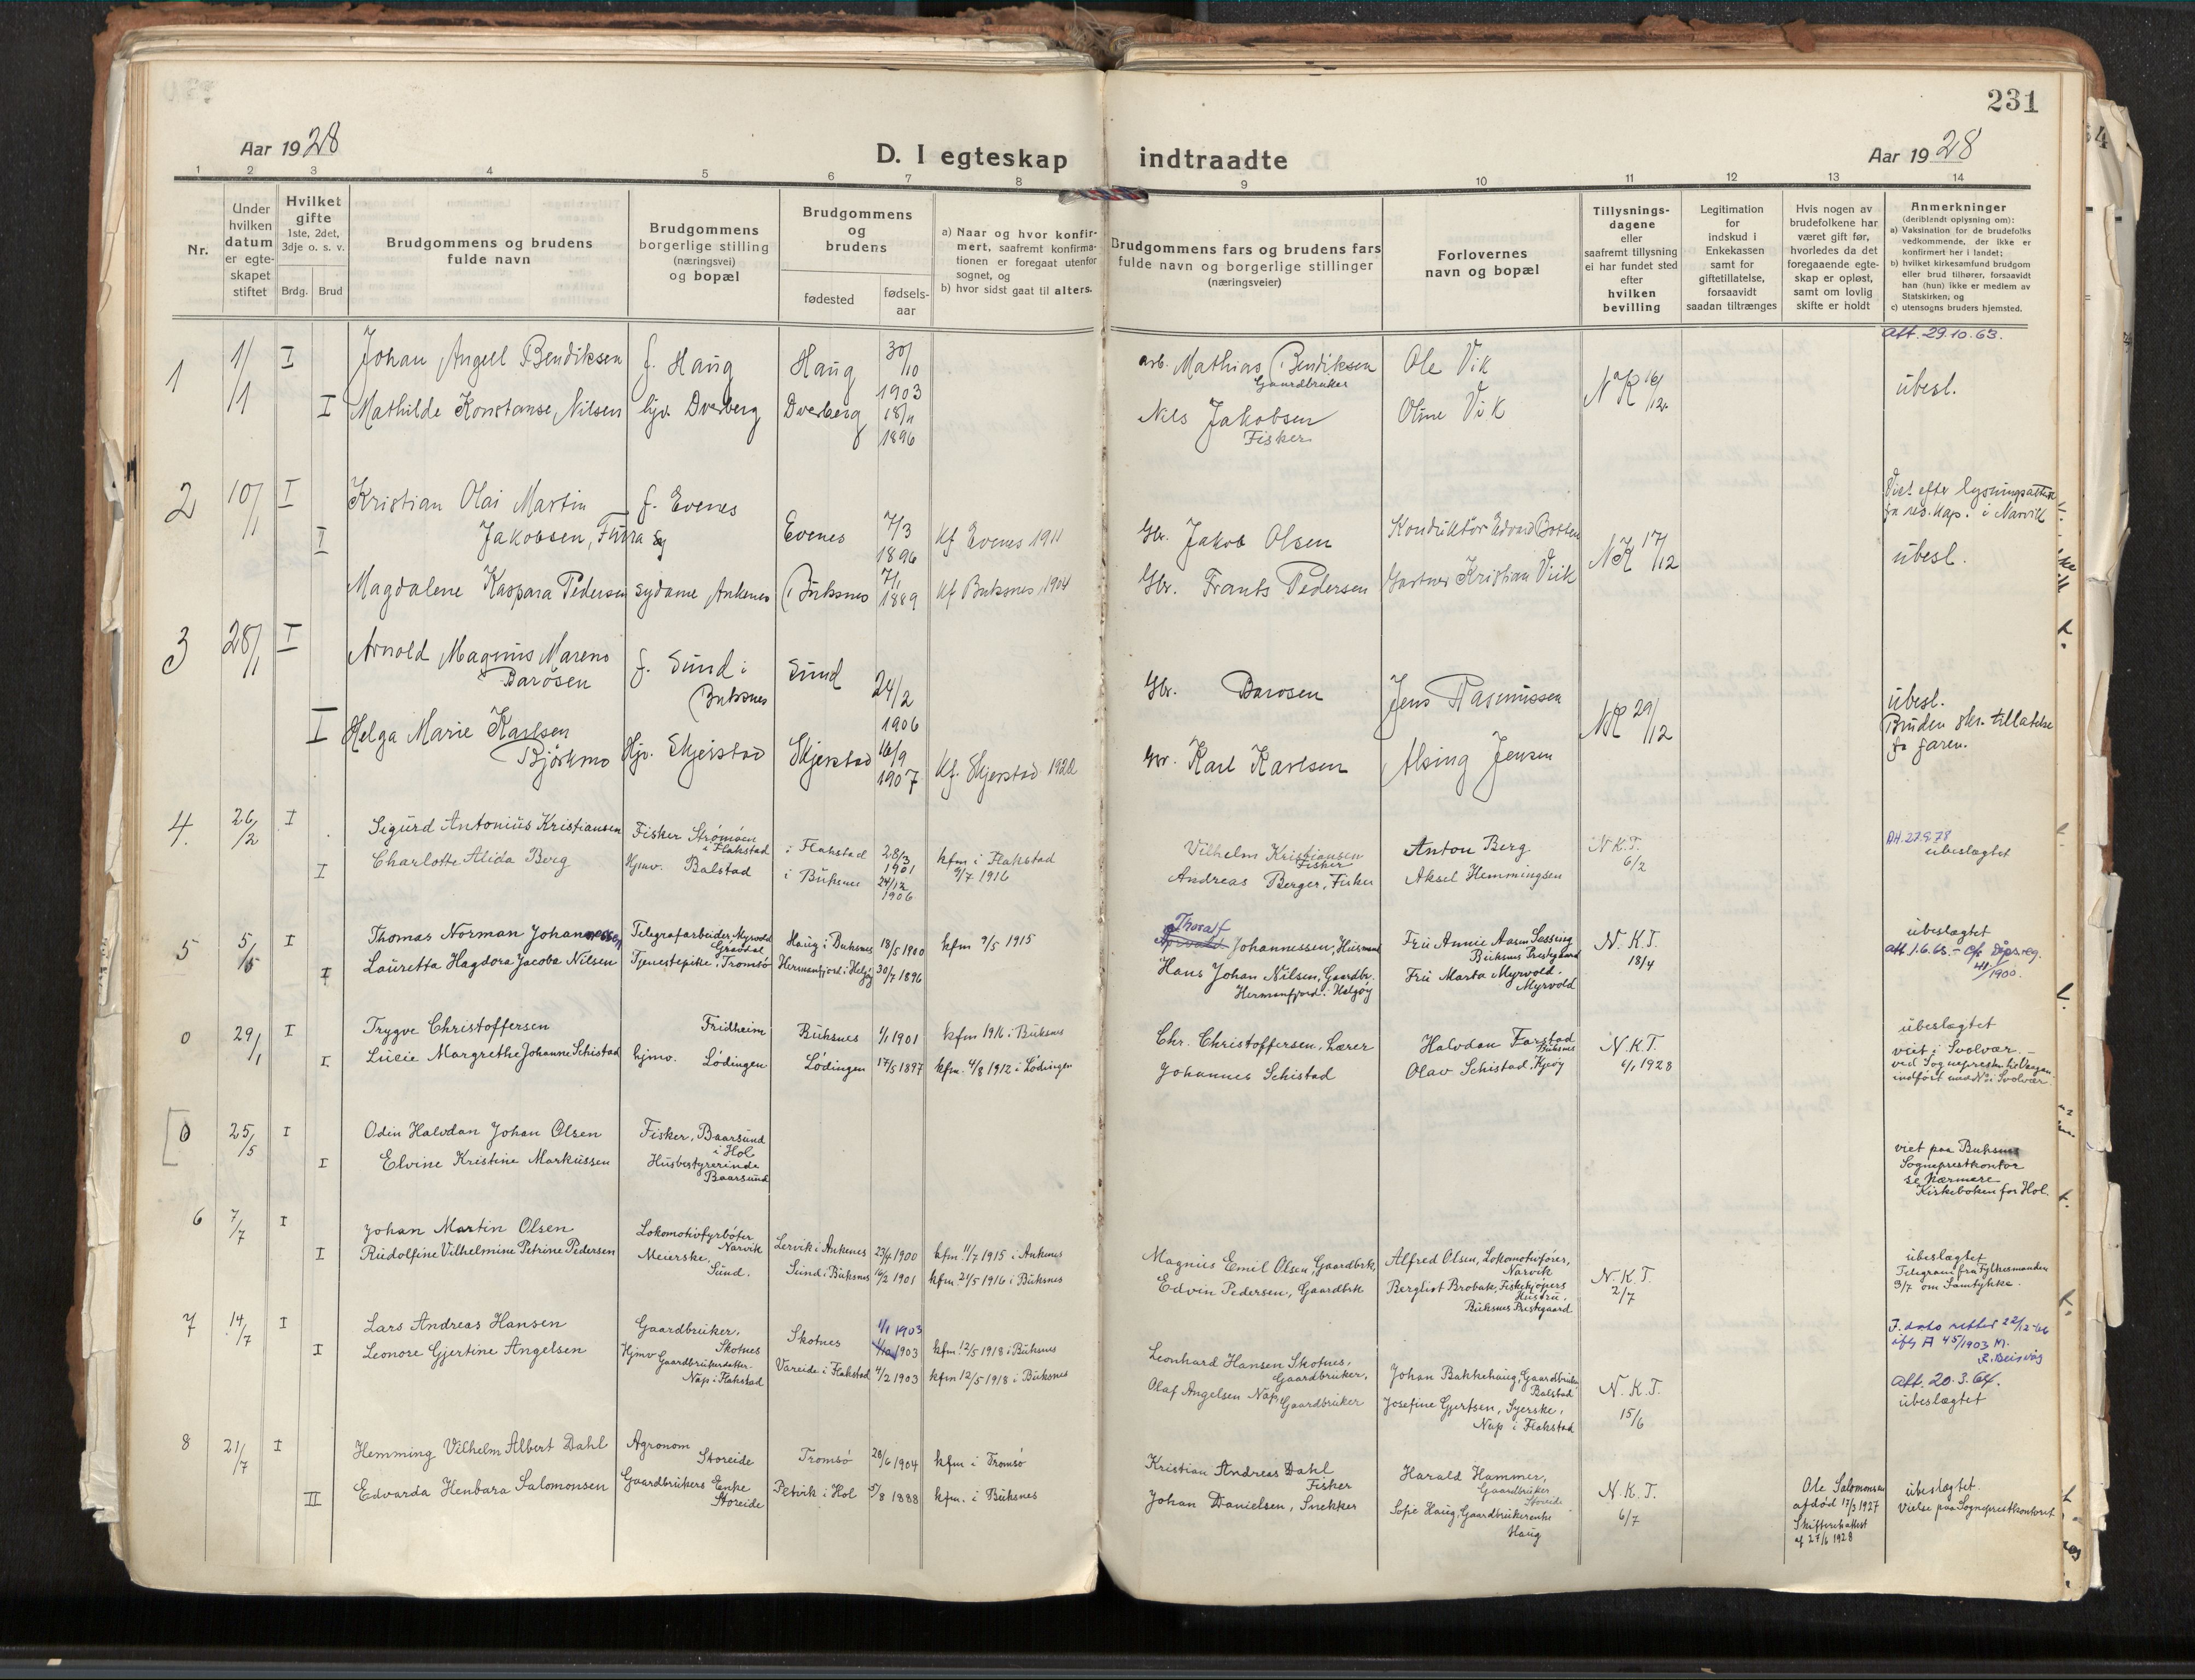 231
Aar 1928
D. I egteskap indtraadte
Aar 1928
1 2 3 4 5 6 7 8 9 10 11 12 13 14
Nr.
Under hvilken datum er egteskapet stiftet
Hvilket gifte 1ste, 2det, 3dje o. s. v.
Brdg. Brud
Brudgommens og brudens fulde navn
Brudgommens borgerlige stilling (næringsvei) og bopæl
Brudgommens og brudens
fødested
fødsels-aar
a) Naar og hvor konfirmert, saafremt konfirmationen er foregaat utenfor sognet, og
b) hvor sidst gaat til alters.
Brudgommens fars og brudens fars fulde navn og borgerlige stillinger (næringsveier)
Forlovernes navn og bopæl
Tillysningsdagene eller saafremt tillysning ei har fundet sted efter hvilken bevilling
Legitimation for indskud i Enkekassen samt for giftetillatelse, forsaavidt saadan tiltrænges
Hvis nogen av brudefolkene har været gift før, hvorledes da det foregaaende egteskap er opløst, samt om lovlig skifte er holdt
Anmerkninger
(deriblandt oplysning om):
a) Vaksination for de brudefolks vedkommende, der ikke er konfirmert her i landet;
b) hvilket kirkesamfund brudgom eller brud tilhører, forsaavidt han (hun) ikke er medlem av Statskirken, og
c) utensogns bruders hjemsted.
1 1/1 I Johan Angell Bendiksen f. Haug Haug 30/10 1903 arb. Mathias Bendiksen Gaardbruker Ole Vik NK 16/12 att. 29.10.63. ubesl.
I Mathilde Konstanse Nilsen hjv. Dverberg Dverberg 18/11 1896 Nils Jakobsen Fisker Oline Vik
2 10/1 I Kristian Olai Martin Jakobsen, Furra f. Evenes Evenes 7/3 1896 kf Evenes 1911 Gbr. Jakob Olsen Konduktør NK 17/12 Viet efter lysningsattest fra res. kap. i Narvik
I Magdalene Kaspara Pedersen sydame Ankenes Buksnes 7/1 1889 kf Buksnes 1904 Gbr. Frants Pedersen Gartner Kristian Vik ubesl.
3 28/1 I Arnold Magnus Mareno Barosen f. Sund i Buksnes Sund 24/2 1906 Gbr. Barosen Jens Rasmussen NK 29/12 ubesl.
I Helga Marie Karlsen Bjørkmo Hjv. Skjerstad Skjerstad 16/9 1907 kf. Skjerstad 1922 Gbr. Karl Karlsen Alsing Jensen Bruden skr. tillatelse fr faren.
4. 26/2 I Sigurd Antonius Kristiansen Fisker Strømøen i Flakstad i Flakstad 28/3 1901 kfm i Flakstad 9/7 1916 Vilhelm Kristiansen Fisker Anton Berg N.K.T. 6/2 Att. 27.9.78 ubeslægtet
I Charlotte Alida Berg Hjmv. Balstad i Buksnes 24/12 1906 Andreas Berger, Fisker Aksel Hemmingsen
5 5/5 I Thomas Norman Johannessen Telegrafarbeider Myrvold Gravdal Haug i Buksnes 18/5 1900 kfm 9/5 1915 Thoralf Johannessen, Husmand Fru Annie Aasen Sessing Buksnes Prestegaard N.K.T. 18/4 ubeslægtet
I Lauretta Hagdora Jacoba Nilsen Tjenestepike, Tromsø Hermanfjord i Helgøy 30/7 1896 Hans Johan Nilsen, Gaardbr. Hermanfjord i Helgøy Fru Marta Myrvold. Myrvold att. 1.6.65. - Cfr. Dåpsreg. 41/1900.
0 29/1 I Trygve Christoffersen Fridheim Buksnes 1/1 1901 kfm 1916 i Buksnes Chr. Christoffersen, Lærer Halvdan Farstad Buksnes N.K.T. 6/1 1928 ubeslægtet
I Lucie Margrethe Johanne Schistad hjmv. Lødingen Lødingen 17/5 1897 kfm. 4/8 1912 i Lødingen Johannes Schistad Olav Schistad, Kjeøy viet i Svolvær. -
0 25/5 I Odin Halvdan Johan Olsen Fisker, Baarsund i Hol
I Elvine Kristine Markussen Husbestyrerinde Baarsund viet paa Buksnes Sogneprestkontor se Nærmere Kirkeboken for Hol.
6 7/7 I Johan Martin Olsen Lokomotivfyrbøter Narvik Lervik i Ankenes 23/4 1900 kfm. 11/7 1915 i Ankenes Magnus Emil Olsen, Gaardbrk, Alfred Olsen, Lokomotivfører, Narvik N.K.T. 2/7 ubeslægtet
I Rudolfine Vilhelmine Petrine Pedersen Meierske. Sund. Sund i Buksnes 16/2 1901 kfm. 21/5 1916 i Buksnes Edvin Pedersen, Gaardbrk Bergliot Brobak, Fiskekjøpers Hustru. Buksnes Prestegaard Telegram fra Fylkesmanden 3/7 om Samtykke.
7 14/7 I Lars Andreas Hansen Gaardbruker, Skotnes Skotnes 1/1 1903 kfm. 12/5 1918 i Buksnes Leonhard Hansen Skotnes, Gaardbruker, Johan Bakkehaug, Gaardbruker Balstad N.K.T. 15/6 F. dato rettet 22/12-66 ifg A 45/1903 M.
I Leonore Gjertine Angelsen Hjmv Gaardbrukerdatter Nap i Flakstad Vareide i Flakstad 4/2 1903 kfm 12/5 1918 i Buksnes Olaf Angelsen Nap, Gaardbruker Josefine Gjertsen, Syerske, Nap i Flakstad Att. 20.3.64. ubeslægtet
8 21/7 I Hemming Vilhelm Albert Dahl Agronom Storeide Tromsø 28/6 1904 kfm i Tromsø Kristian Andreas Dahl Fisker Harald Hammer, Gaardbruker Storeide N.K.T. 6/7 Ole Salomonsen afdød 17/3 1927 Skifteretsattest af 27/6 1928 ubeslægtet.
II Edvarda Henbara Salomonsen Gaardbrukers Enke Storeide Petvik i Hol 5/8 1888 kfm. i Buksnes Johan Danielsen, Snekker Sofie Haug, Gaardbrukerenke Haug Vielse paa Sogneprestkontoret